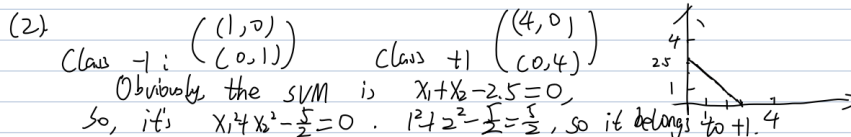 (2)
Class -1: ((1,0) (0,1)) Class +1 ((4,0) (0,4))
Obviously, the SVM is x₁+x₂-2.5=0,
So, it's x₁²+x₂²-5/2=0. 1²+2²-5/2=5/2, so it belongs to +1.
4
2.5
1
4